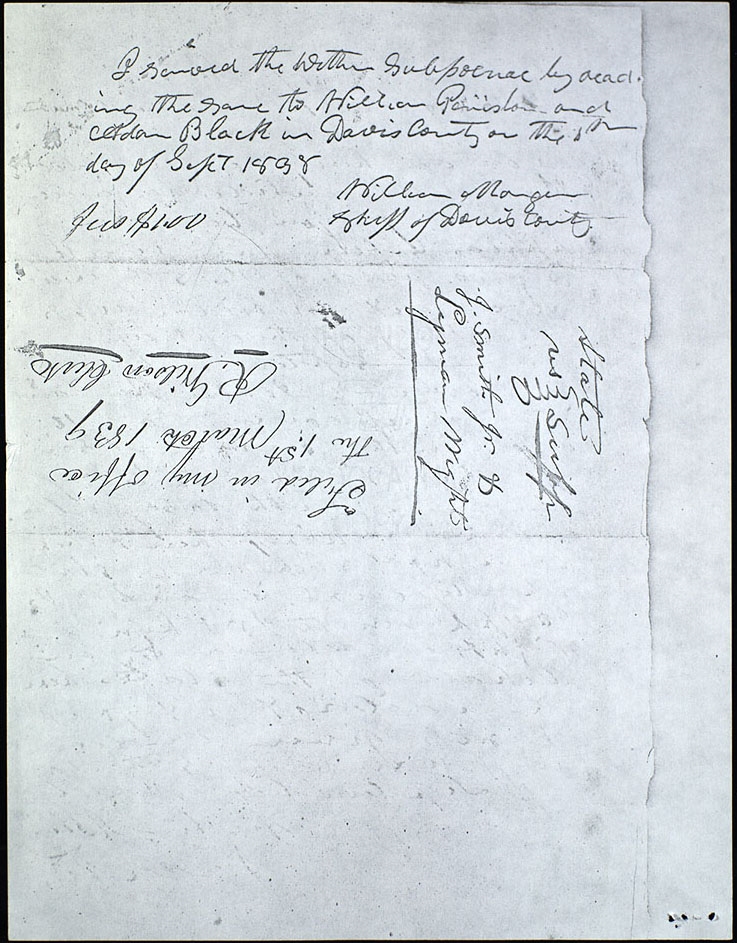 I served the within Subpoenae by read-
ing the same to William Peniston and
Adam Black in Davis County on the
day of Sept 1838
William Morgan
Sheff of Davis County
State
vs Subp
J. Smith Jr. &
Lyman Wight
Filed in my office
the 1st March 1839
R. Wilson Clerk